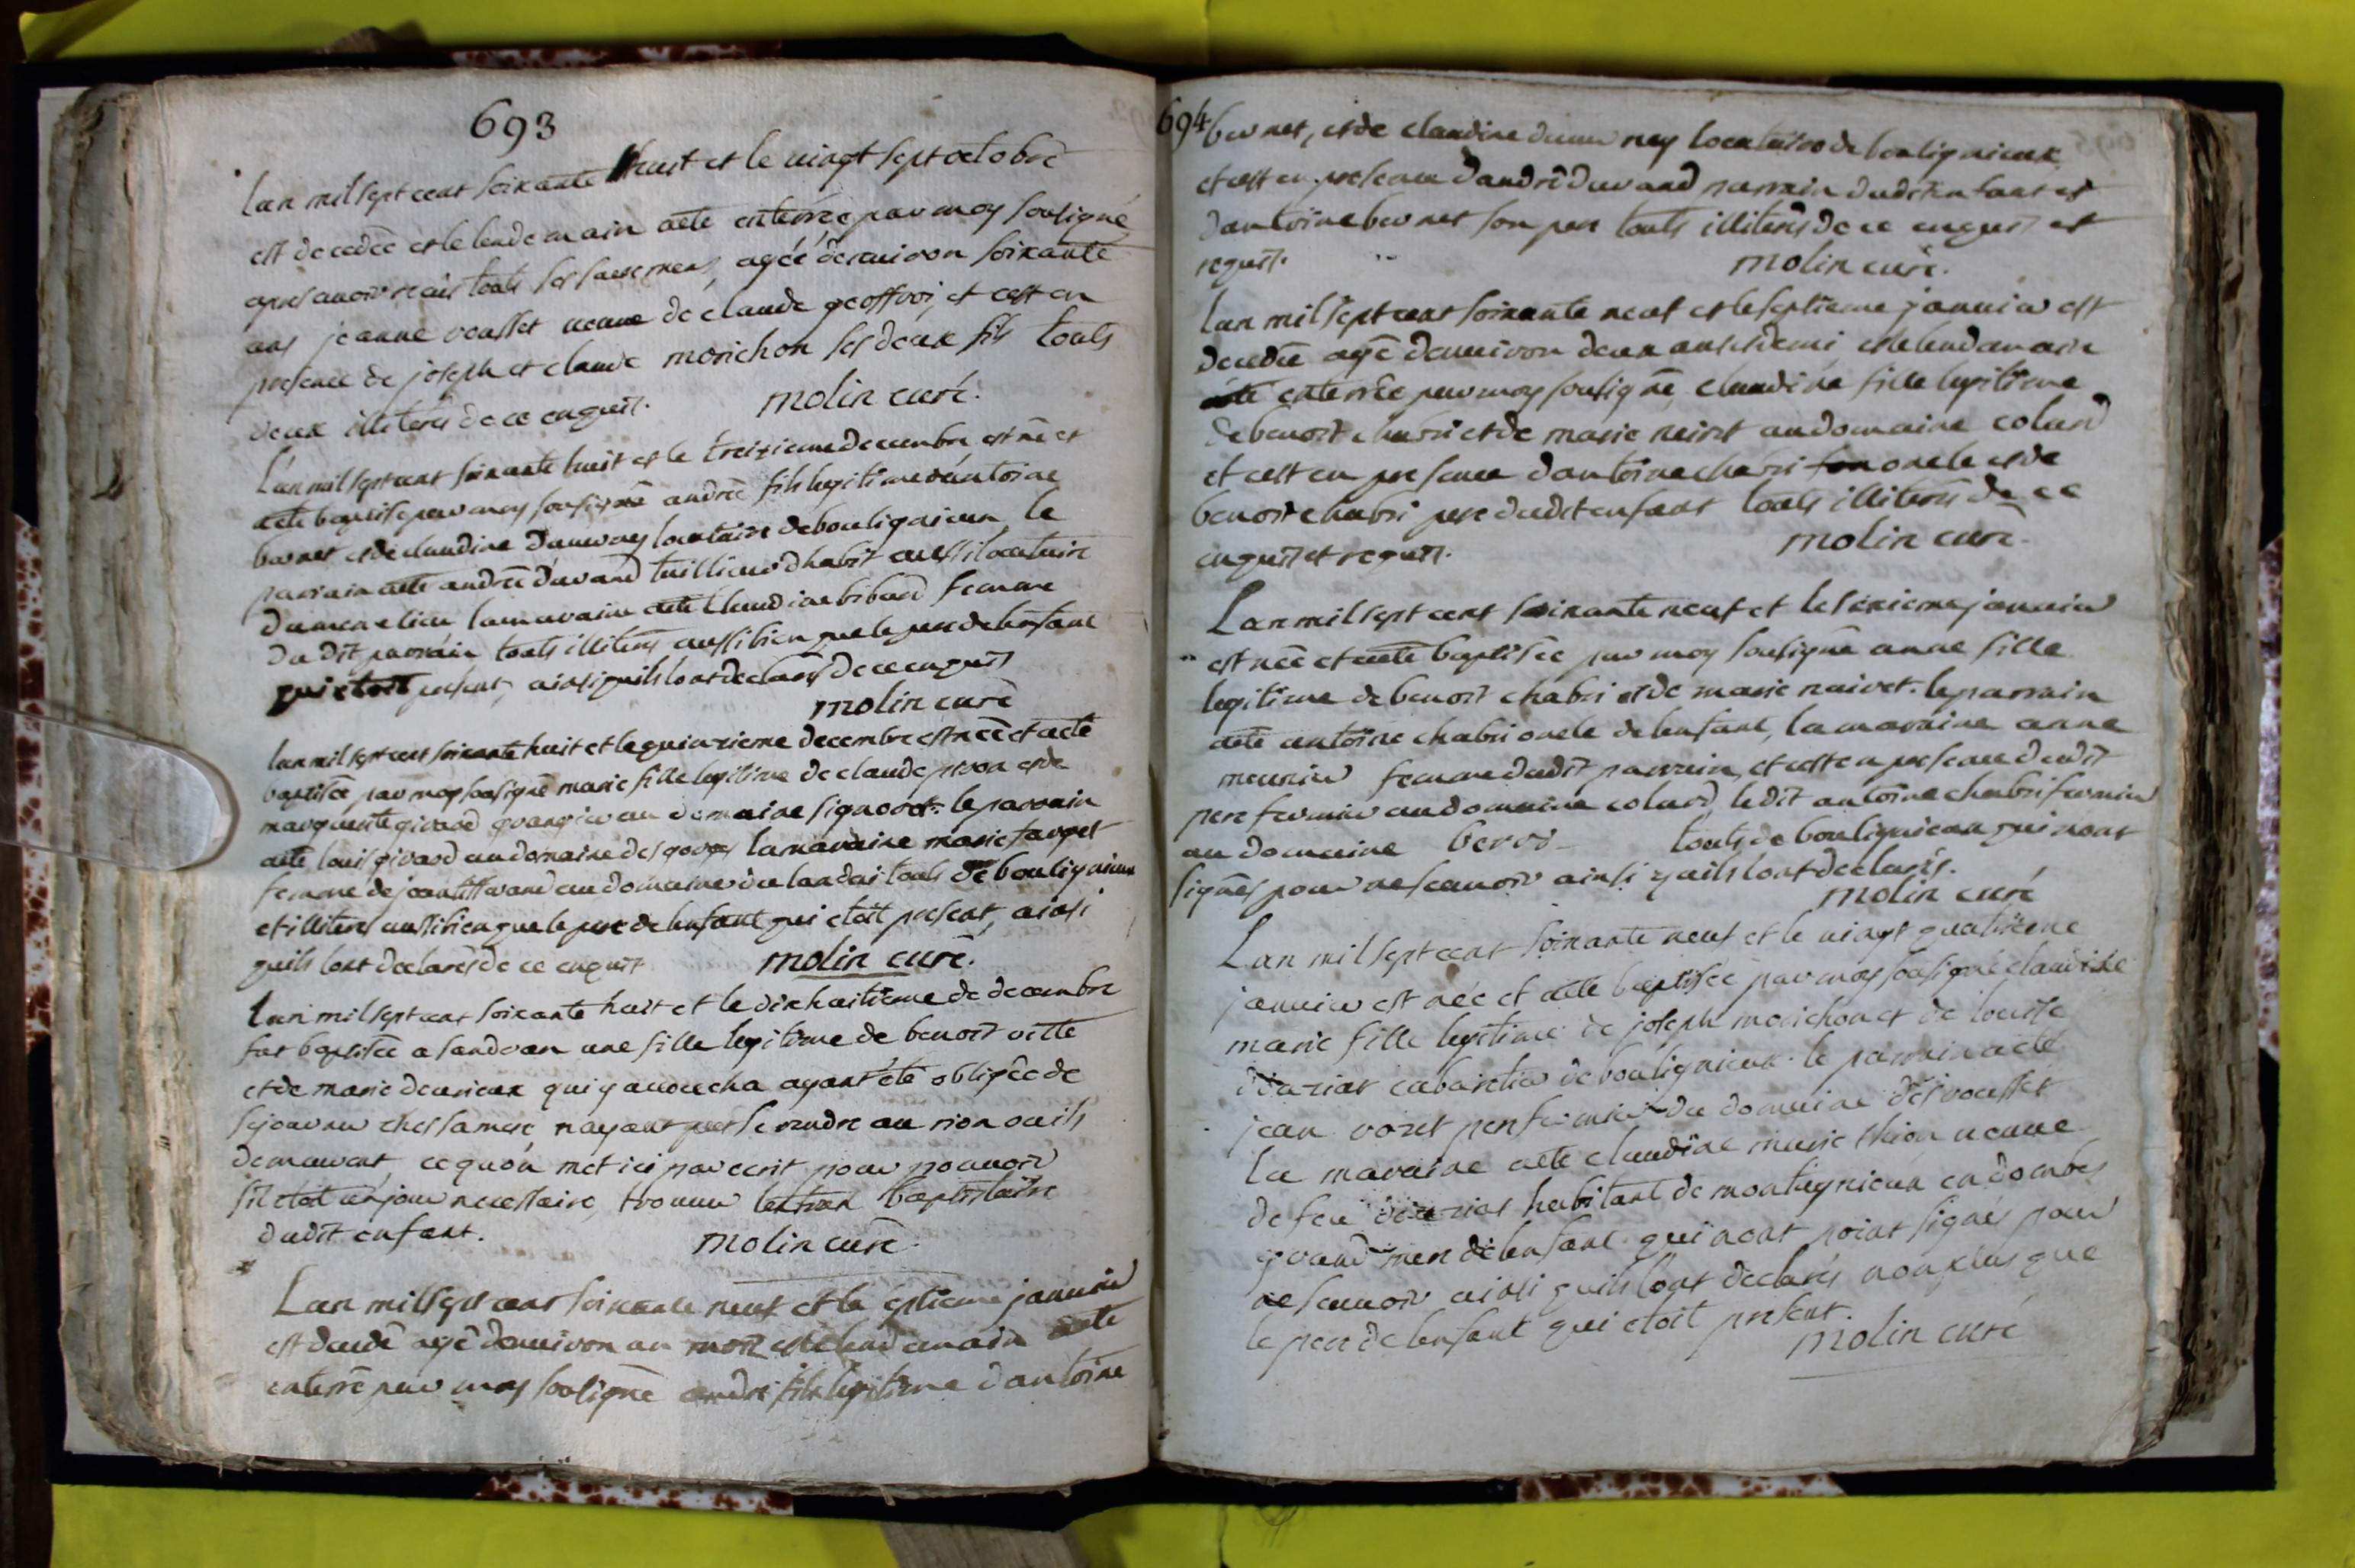 693
lan mil sept cent soixante huit et le vingt sept octobre
est decedée et le lendemain aeté enterrée par moy souligné
apres avoir recus touts ses sacremens, agéé denuivon soixante
ans jeanne vousset veuve de claude geoffroi, et cest en
presence de joseph et claude morichon ses deux fils touts
deux illiterés de ce enquis. molin curé.
L'an mil sept cent soixante huit et le treizieme decembre est né et
aeté baptisé par moy sousigné andré fils legitime dantoine
bernet et de claudine duverney locataire de bouligneux, le
parrain aeté andré durand tuillieur dhabit aussi locataire
du meme lieu la maraine aeté claudine bibard femme
du dit parrain touts illiterés aussi bien que le pere de lenfant
qui etoit present, ainsi quils lont declarés de ce enquis
molin curé
lan mil sept cent soixante huit et le quinzieme decembre est née et aeté
baptisée par moy sousigné marie fille legitime de claude piron et de
marguerite girard granger au domaine signoret. le parrain
aeté louis girard au domaine des gorges la maraine marie farget
femme de jean tissurand au domaine du landai touts de bouligneux
et illiterés aussi bien que le pere de lenfant qui etoit present, ainsi
quils lont declarés de ce enquis molin curé.
Lan mil sept cent soixante huit et le dixhuitieme de decembre
fut baptisée a sandran une fille legitime de benoit vitte
et de marie deurieux qui y accoucha ayant été obligée de
sejourner ches sa mere, nayant put se rendre au rion ou ils
demeurent, ce quon met ici par ecrit pour pouvoir
sil etoit un jour necessaire, trouver lextrait baptistaire
dudit enfant. molin curé.
Lan mil sept cent soixante neuf et le septieme janvier
est decedé agé denuivon un mois et le lendemain aeté
enterré par moy souligné andré fils legitime dantoine
694
bernet, et de claudine duverney locataire de bouligneux
et cest en presence dandré durand parrain dudit enfant et
dantoine bernet son pere touts illiterés de ce enquis et
requis. molin curé.
lan mil sept cent soixante neuf et le septieme janvier est
decedée agé denuivon deux ans et demi et le lendemain
aeté enterrée par moy souligné claudine fille legitime
de benoit chabri et de marie neiret au domaine colard
et cest en presence dantoine chabri son oncle et de
benoit chabri pere dudit enfant touts illiterés de ce
enquis et requis. molin curé.
Lan mil sept cent soixante neuf et le seizieme janvier
est née et aeté baptisée par moy sousigné anne fille
legitime de benoit chabri et de marie naivet. le parrain
aeté antoine chabri oncle de lenfant, la maraine anne
meunier femme dudit parrain, et cest en presence dudit
pere fermier au domaine colard, ledit antoine chabri fermier
au domaine berod touts de bouligneux qui nont
signés pour ne scavoir ainsi quils lont declarés.
molin curé
Lan mil sept cent soixante neuf et le vingt quatrieme
janvier est née et aeté baptisée par moy sousigné claudine
marie fille legitime de joseph morichon et de louise
cabaretier de bouligneux. le parrain aeté
jean voret fermier du domaine des vousset
la maraine aeté claudine marie thion veuve
de feu habitant de montignieux en dombes
grand mere de lenfant qui nont point signés pour
ne scavoir ainsi quils lont declarés non plus que
le pere de lenfant qui etoit present.
molin curé